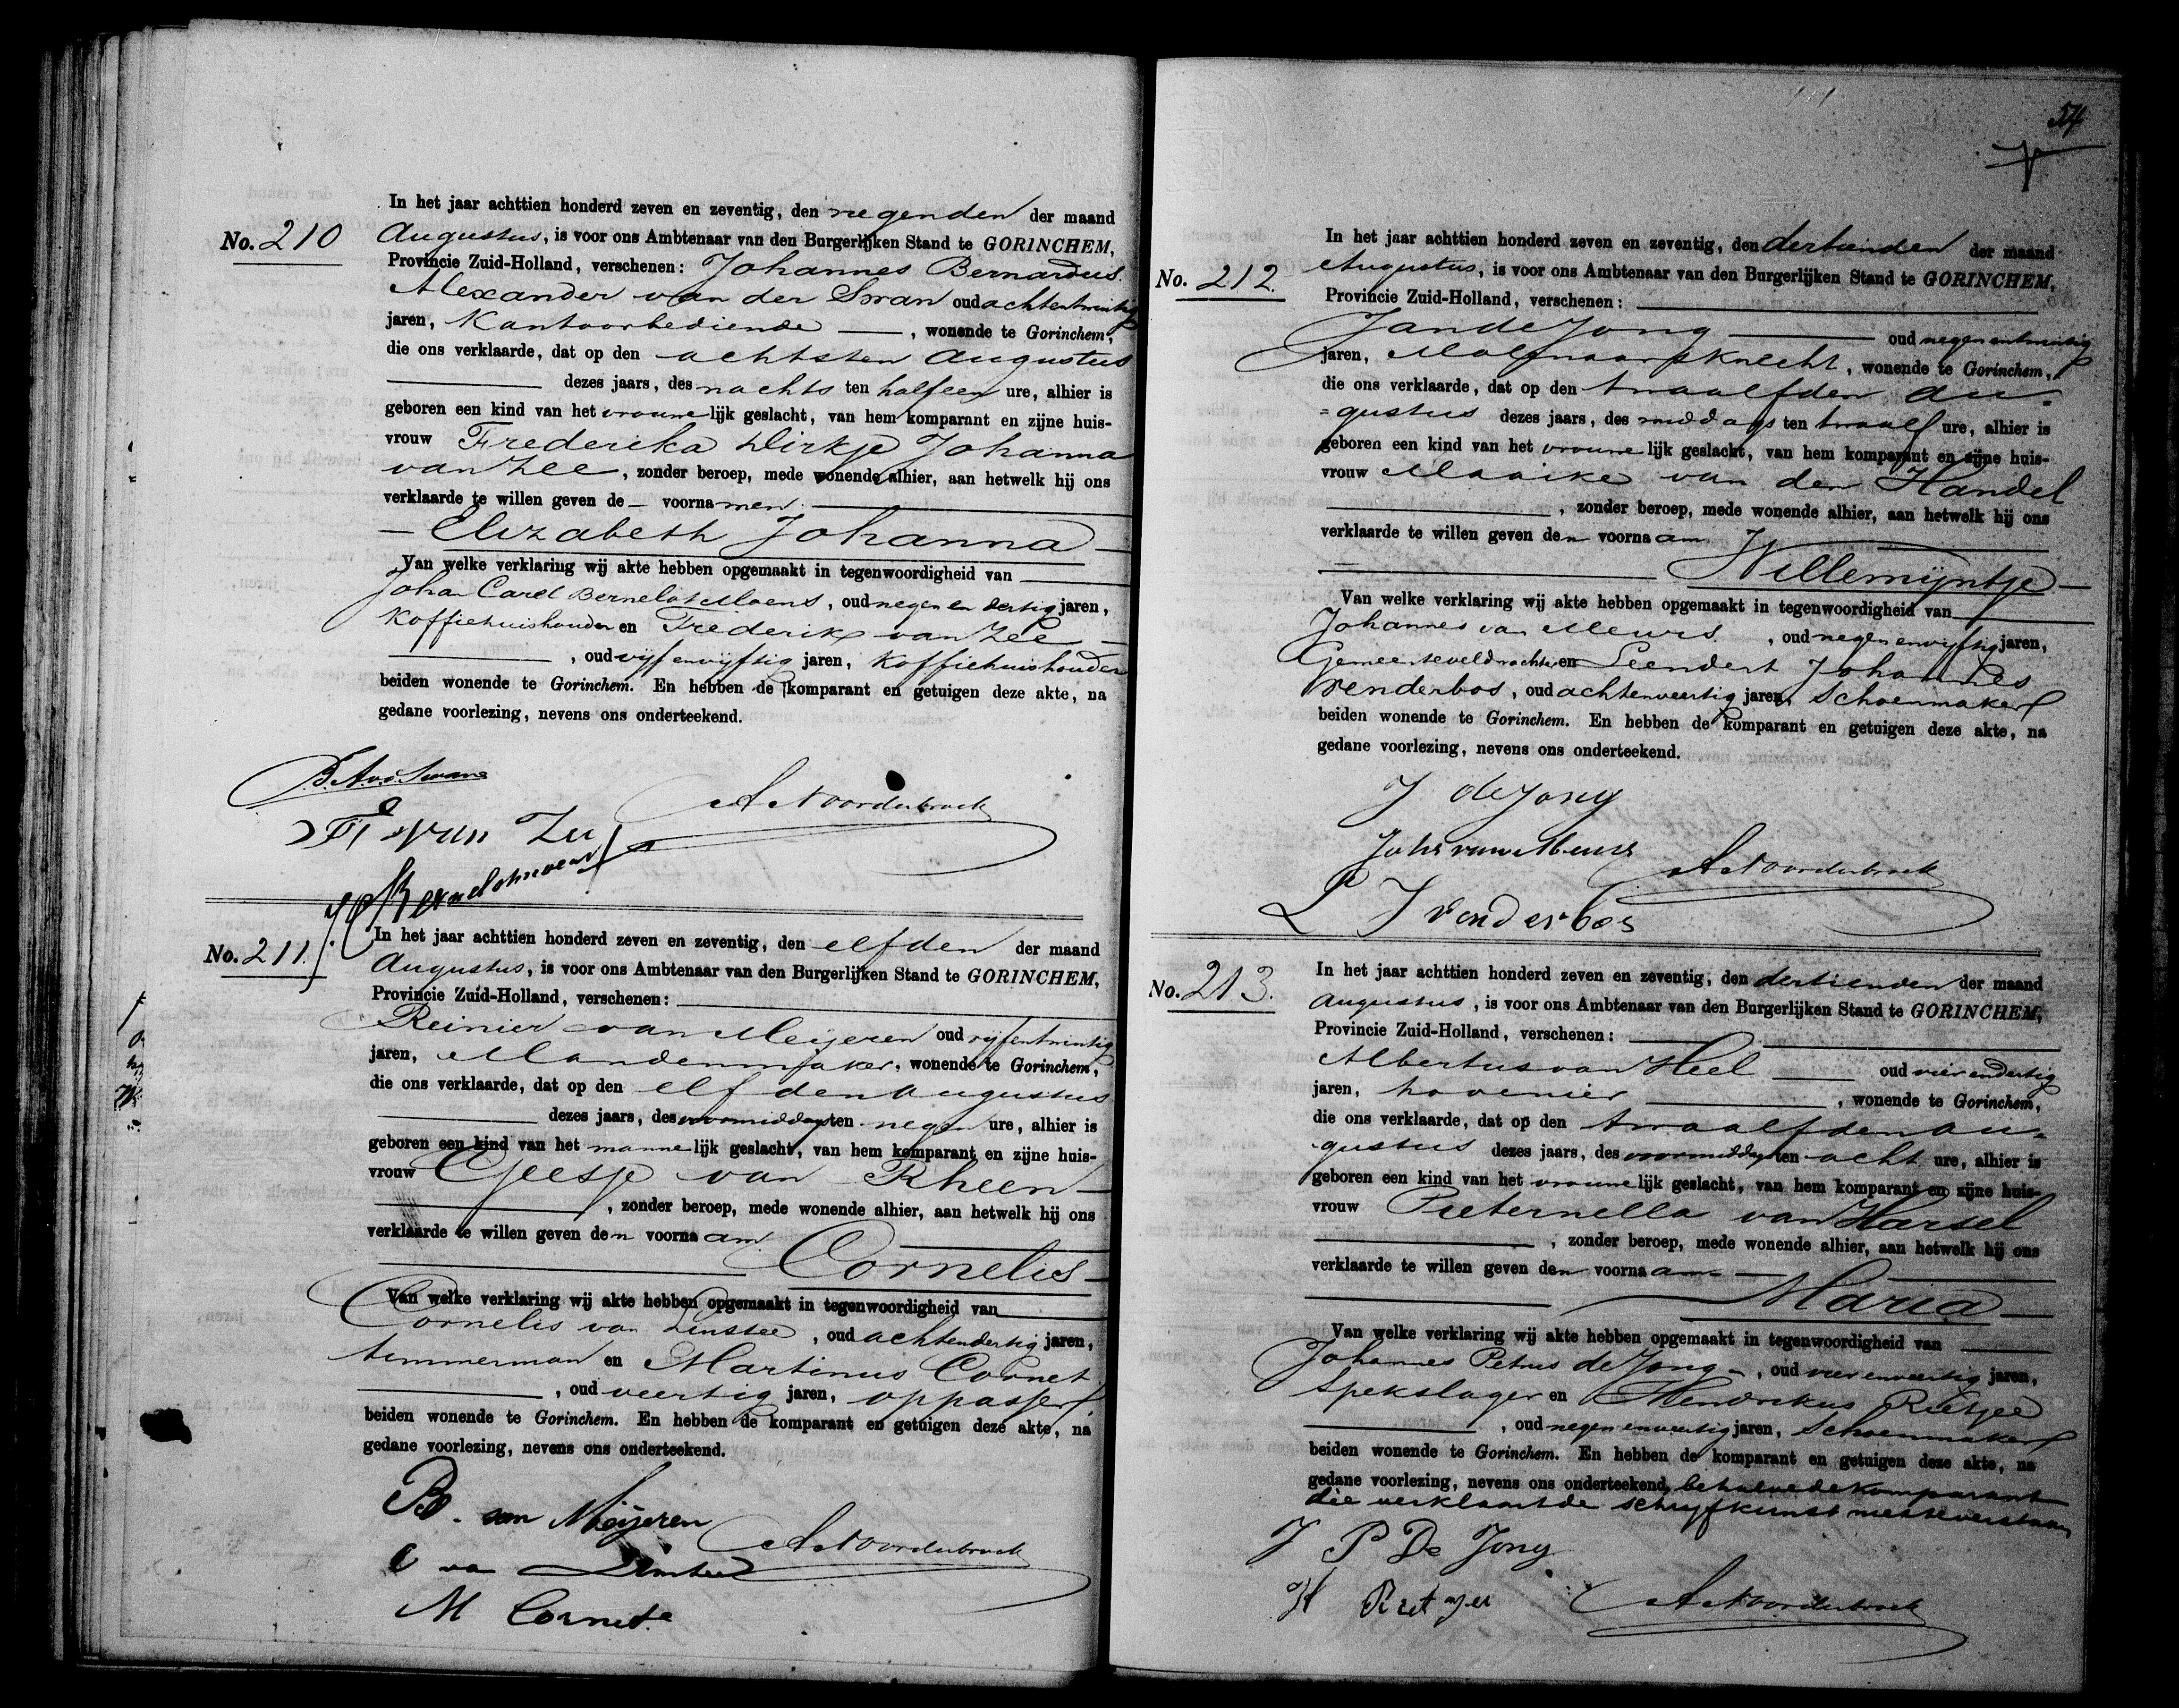 No. 210
In het jaar achttien honderd zeven en zeventig, den negenden der maand
Augustus, is voor ons Ambtenaar van den Burgerlijken Stand te GORINCHEM,
Provincie Zuid-Holland, verschenen: Johannes Bernardus
Alexander van der Swan oud achtentwintig
jaren, Kantoorbediende, wonende te Gorinchem,
die ons verklaarde, dat op den achtsten Augustus
dezes jaars, des nachts ten half een ure, alhier is
geboren een kind van het vrouwelijk geslacht, van hem komparant en zijne huis-
vrouw Frederika Dirkje Johanna
van Zee, zonder beroep, mede wonende alhier, aan hetwelk hij ons
verklaarde te willen geven de voornamen
Elizabeth Johanna
Van welke verklaring wij akte hebben opgemaakt in tegenwoordigheid van
Johan Carel Bernelot Moens, oud negen en dertig jaren,
Koffiehuishouder en Frederik van Zee
, oud vijf en vijftig jaren, Koffiehuishouder
beiden wonende te Gorinchem. En hebben de komparant en getuigen deze akte, na
gedane voorlezing, nevens ons onderteekend.
A Noordubroek
F van Zee
No. 211.
In het jaar achttien honderd zeven en zeventig, den elfden der maand
Augustus, is voor ons Ambtenaar van den Burgerlijken Stand te GORINCHEM,
Provincie Zuid-Holland, verschenen:
Reinier van Meijeren oud vijfentwintig
jaren, Mandenmaker, wonende te Gorinchem,
die ons verklaarde, dat op den elfden Augustus
dezes jaars, des voormiddags ten negen ure, alhier is
geboren een kind van het mannelijk geslacht, van hem komparant en zijne huis-
vrouw Geesje van Rheen
, zonder beroep, mede wonende alhier, aan hetwelk hij ons
verklaarde te willen geven den voornaam
Cornelis
Van welke verklaring wij akte hebben opgemaakt in tegenwoordigheid van
Cornelis van Linstee, oud achtendertig jaren,
timmerman en Martinus Cornet
, oud veertig jaren, oppasser
beiden wonende te Gorinchem. En hebben de komparant en getuigen deze akte, na
gedane voorlezing, nevens ons onderteekend.
R. van Meijeren
A Noordubroek
C van Linstee
M Cornet.
54
No. 212.
In het jaar achttien honderd zeven en zeventig, den dertienden der maand
Augustus, is voor ons Ambtenaar van den Burgerlijken Stand te GORINCHEM,
Provincie Zuid-Holland, verschenen:
Jan de Jong oud negenentwintig
jaren, Molenaarsknecht, wonende te Gorinchem,
die ons verklaarde, dat op den twaalfden Au-
=gustus dezes jaars, des middags ten twaalf ure, alhier is
geboren een kind van het vrouwelijk geslacht, van hem komparant en zijne huis-
vrouw Maaike van den Handel
, zonder beroep, mede wonende alhier, aan hetwelk hij ons
verklaarde te willen geven den voornaam
Willemijntje
Van welke verklaring wij akte hebben opgemaakt in tegenwoordigheid van
Johannes van Meurs, oud negen en vijftig jaren,
Gemeenteveldwachter en Leendert Johannes
Venderbos, oud achtenveertig jaren, Schoenmaker
beiden wonende te Gorinchem. En hebben de komparant en getuigen deze akte, na
gedane voorlezing, nevens ons onderteekend.
J de Jong
Johs van Meurs
A Noordubroek
L J Venderbos
No. 213.
In het jaar achttien honderd zeven en zeventig, den dertienden der maand
Augustus, is voor ons Ambtenaar van den Burgerlijken Stand te GORINCHEM,
Provincie Zuid-Holland, verschenen:
Albertus van Heel oud vierendertig
jaren, hovenier, wonende te Gorinchem,
die ons verklaarde, dat op den twaalfden Au=
gustus dezes jaars, des voormiddags ten acht ure, alhier is
geboren een kind van het vrouwelijk geslacht, van hem komparant en zijne huis-
vrouw Pieternella van Harsel
, zonder beroep, mede wonende alhier, aan hetwelk hij ons
verklaarde te willen geven den voornaam
Maria
Van welke verklaring wij akte hebben opgemaakt in tegenwoordigheid van
Johannes Petrus de Jong, oud vierenveertig jaren,
Spekslager en Hendrikus Rietgee
, oud negenenveertig jaren, Schoenmaker
beiden wonende te Gorinchem. En hebben de komparant en getuigen deze akte, na
gedane voorlezing, nevens ons onderteekend, behalve de Komparant
die verklaarde schrijfkunst niet te verstaan
J P De Jong
H
A Noordubroek